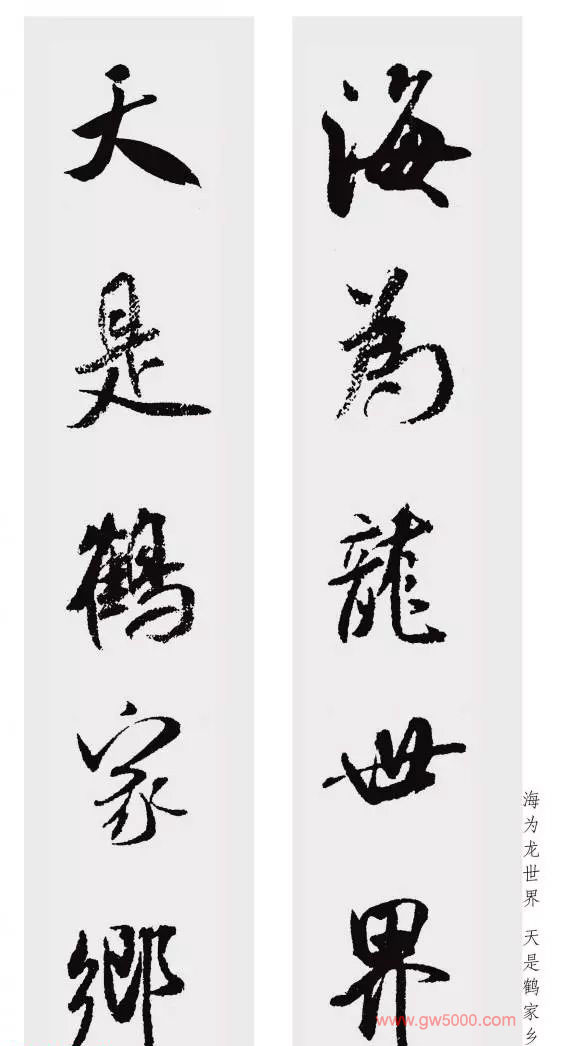 海為龍世界
天是鶴家鄉
海为龙世界 天是鹤家乡
www.gw5000.com